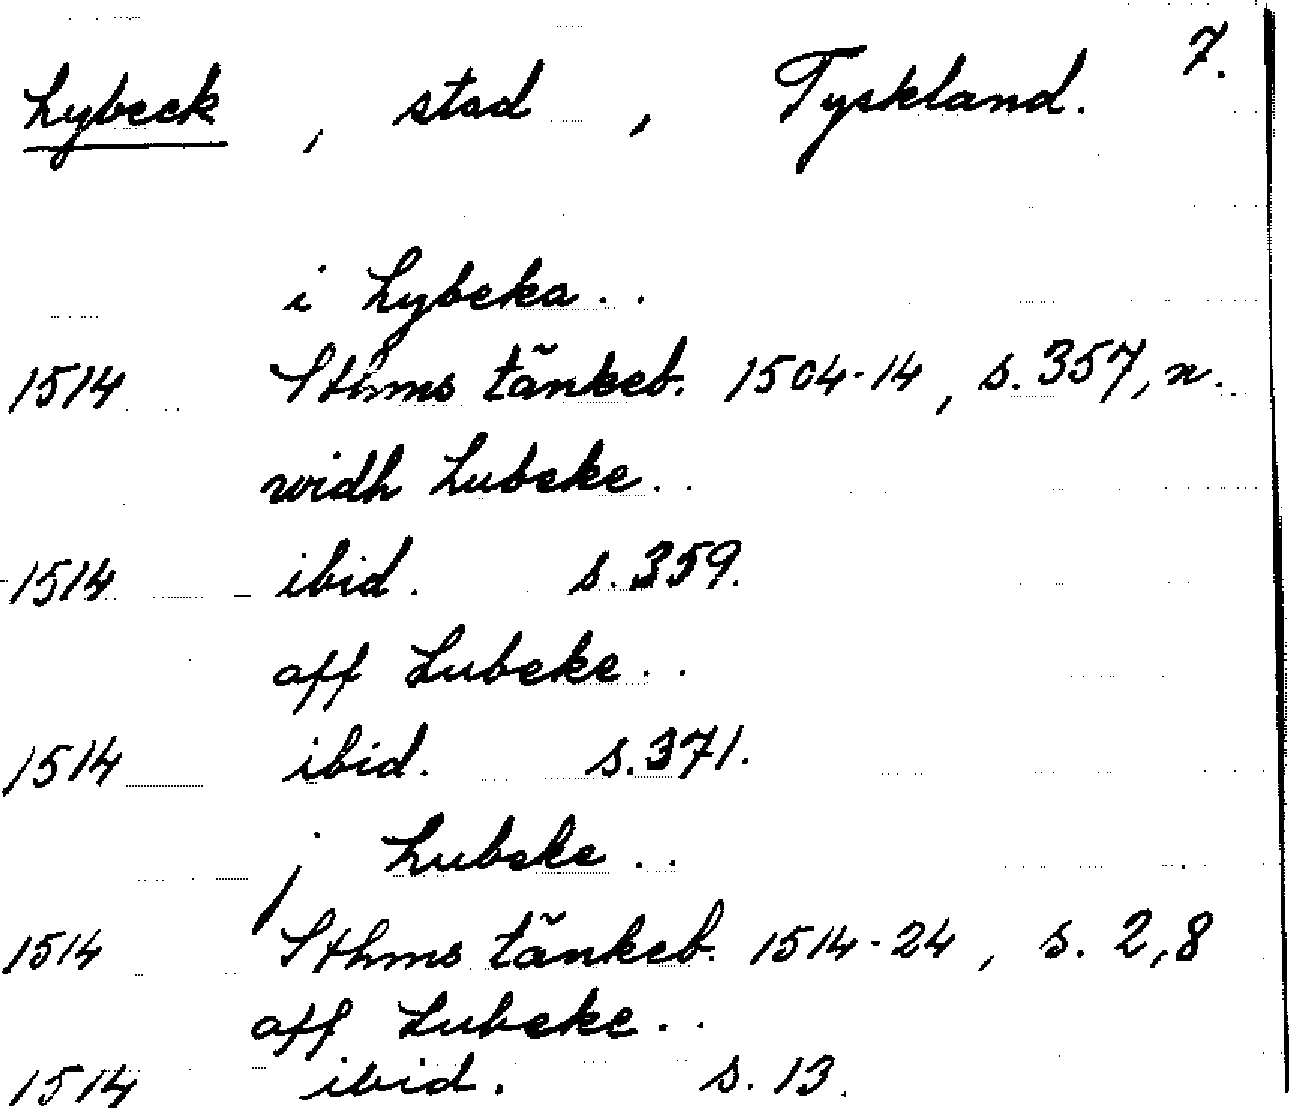 7.
Lybeck, stad, Tyskland.
i Lybeka..
1514 Sthms tänkeb. 1504-14, s. 357, n.
widh Lubeke..
1514 ibid. s. 359.
aff Lubeke..
1514 ibid. s. 371.
j Lubeke..
1514 Sthms tänkeb. 1514-24, s. 2,8
aff Lubeke..
1514 ibid. s. 13.